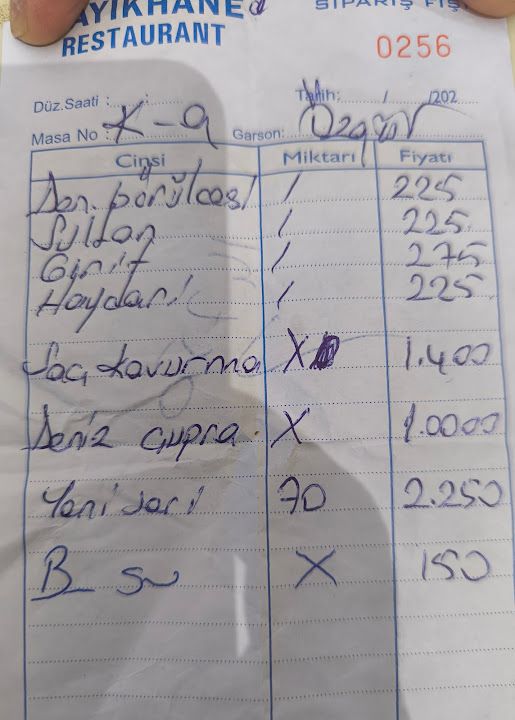 AYIKHANE
SİPARİŞ FİŞİ
RESTAURANT
0256
Düz.Saati : :
Tarih: / /202
Masa No : K-9 Garson: Özgür
Cinsi Miktarı Fiyatı
Den. börülcesi / 225
Sultan / 225
Girit / 275
Haydari / 225
Saç kavurma X 1.400
Deniz çupra. X 1.0000
Yeni seri 70 2.250
B su X 150